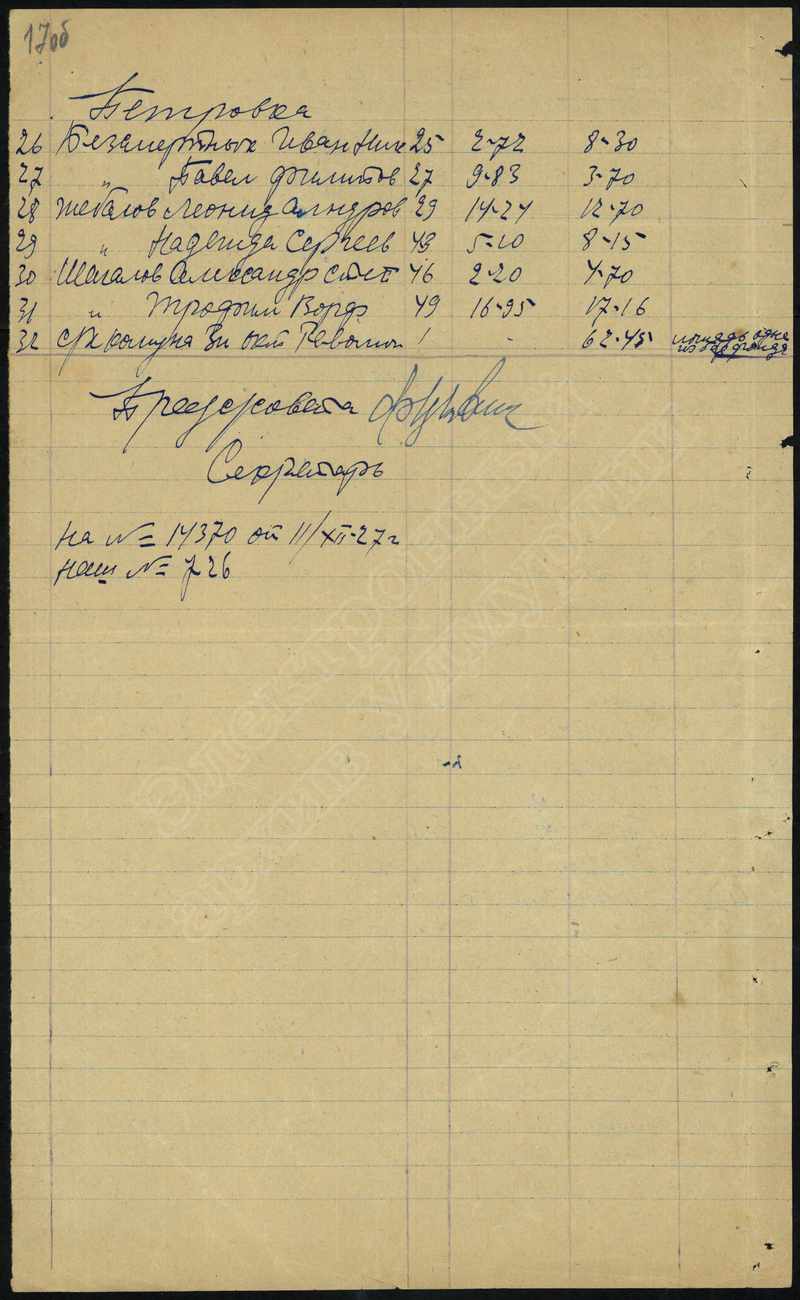 17об
Петровка
26 Безсмертных Иван Ник 25 2-72 8-30
27 " Павел Филипов 27 9-83 3-70
28 Шебалов Леонид Алндров 29 14-24 12-70
29 " Надежда Сергеев 49 5-10 8-15
30 Шагалов Александр Степ 46 2-20 4-70
31 " Трофим 49 16-95 17-16
32 с/х комуна Зн окт Револю 1 - 62-45 площадь одна
из
Предсовета
Секретарь
на № 14370 от 11/XII-27г
наш № 726
Электронный
архив